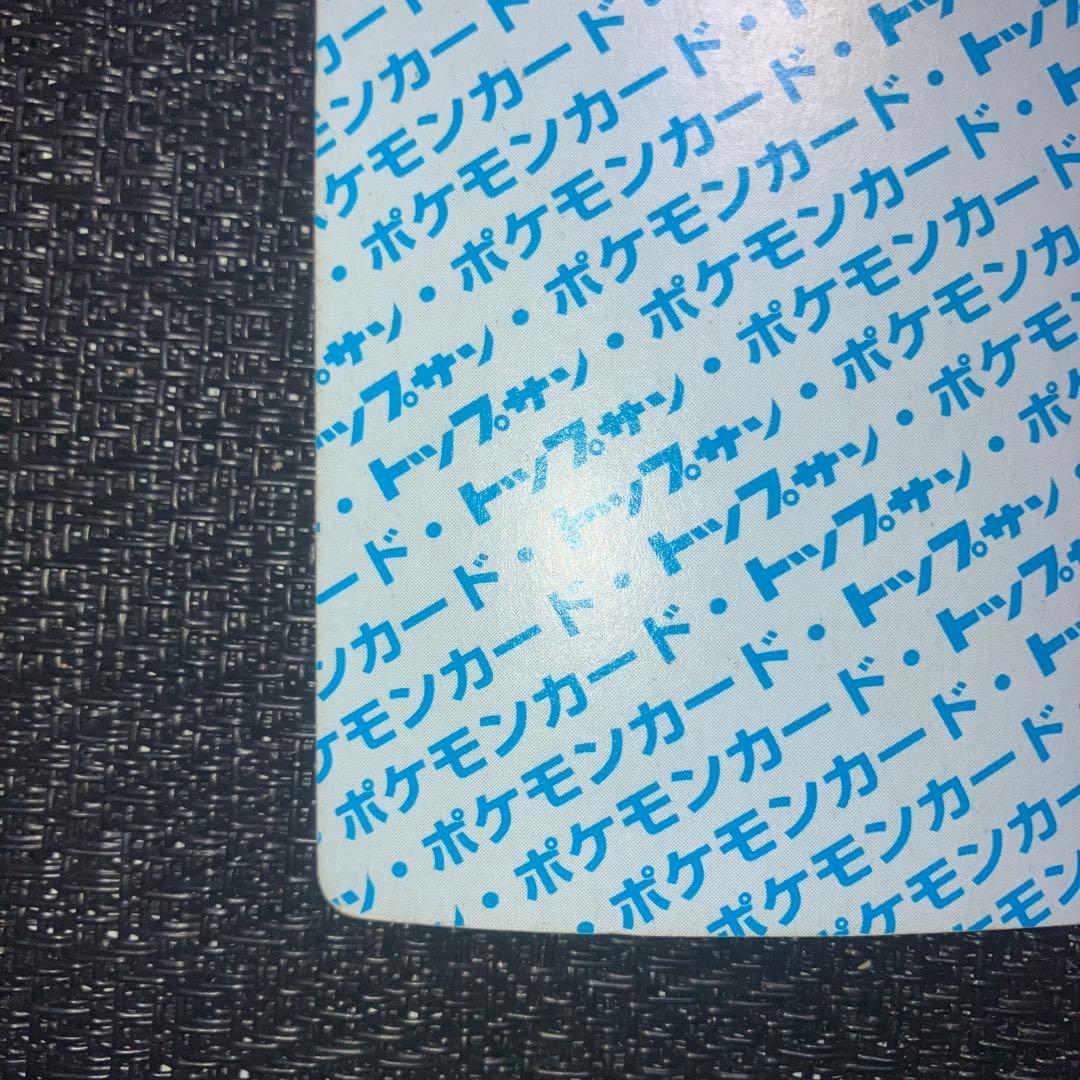 カード
モンカード
ケモンカード
・ポケモンカード・
プサン・ポケモンカード・ト
トップサン・ポケモンカード・トップ
・トップサン・ポケモンカード・ト
ード・トップサン・ポケモンカード
ンカード・トップサン・ポケモンカ
ケモンカード・トップサン・ポケモ
ポケモンカード・トップサン・ポケ
ン・ポケモンカード・トップサン・
ン・ポケモンカード・トップサ
・ポケモンカード・ト
ポケモンカード・
ポケモンカー
ケモン